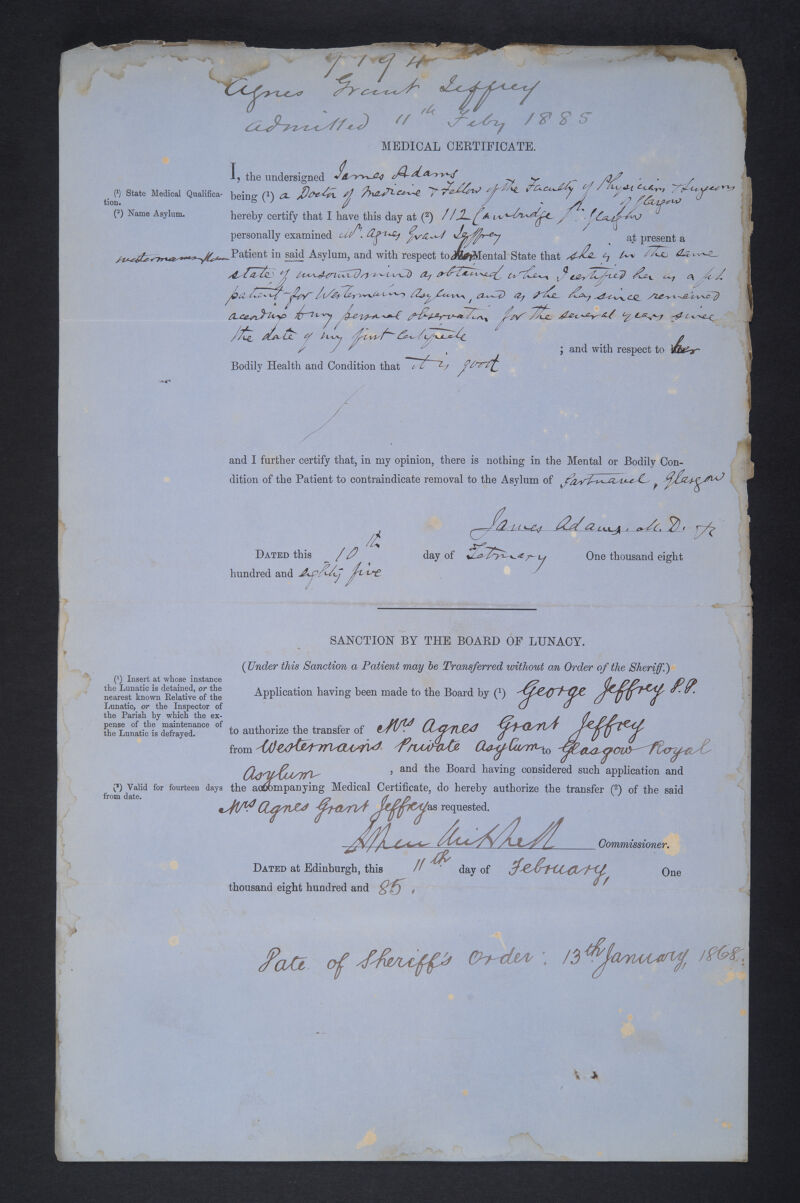 Agnes Grant Jeffrey
admitted 11th Feby 1885
MEDICAL CERTIFICATE.
I, the undersigned James Adams
(1) State Medical Qualifica-
tion.
being (1) a Doctor of Medicine & Fellow of the Faculty of Physicians & Surgeons
of Glasgow
(2) Name Asylum.
hereby certify that I have this day at (2) 112 Cambridge St. Glasgow
personally examined Mrs. Agnes Grant Jeffrey at present a
Westermains Asylum
Patient in said Asylum, and with respect to her Mental State that she is in the same
state of unsound mind as obtained when I certified her as a
patient for Westermains Asylum, and as she has since remained
according to my personal observation for the several years since
the date of my first Certificate
; and with respect to her
Bodily Health and Condition that it is good
and I further certify that, in my opinion, there is nothing in the Mental or Bodily Con-
dition of the Patient to contraindicate removal to the Asylum of Gartnavel, Glasgow
James Adams. M.D. &c
DATED this 10th day of February One thousand eight
hundred and eighty five
SANCTION BY THE BOARD OF LUNACY.
(Under this Sanction a Patient may be Transferred without an Order of the Sheriff.)
(1) Insert at whose instance
the Lunatic is detained, or the
nearest known Relative of the
Lunatic, or the Inspector of
the Parish by which the ex-
pense of the maintenance of
the Lunatic is defrayed.
Application having been made to the Board by (1) George Jeffrey P.P.
to authorize the transfer of Mrs Agnes Grant Jeffrey
from Westermains Private Asylum to Glasgow Royal
Asylum , and the Board having considered such application and
(2) Valid for fourteen days
from date.
the accompanying Medical Certificate, do hereby authorize the transfer (2) of the said
Mrs Agnes Grant Jeffrey as requested.
Arthur Mitchell Commissioner.
DATED at Edinburgh, this 11th day of February, One
thousand eight hundred and 85.
Date of Sheriff's Order: 13th January, 1868.